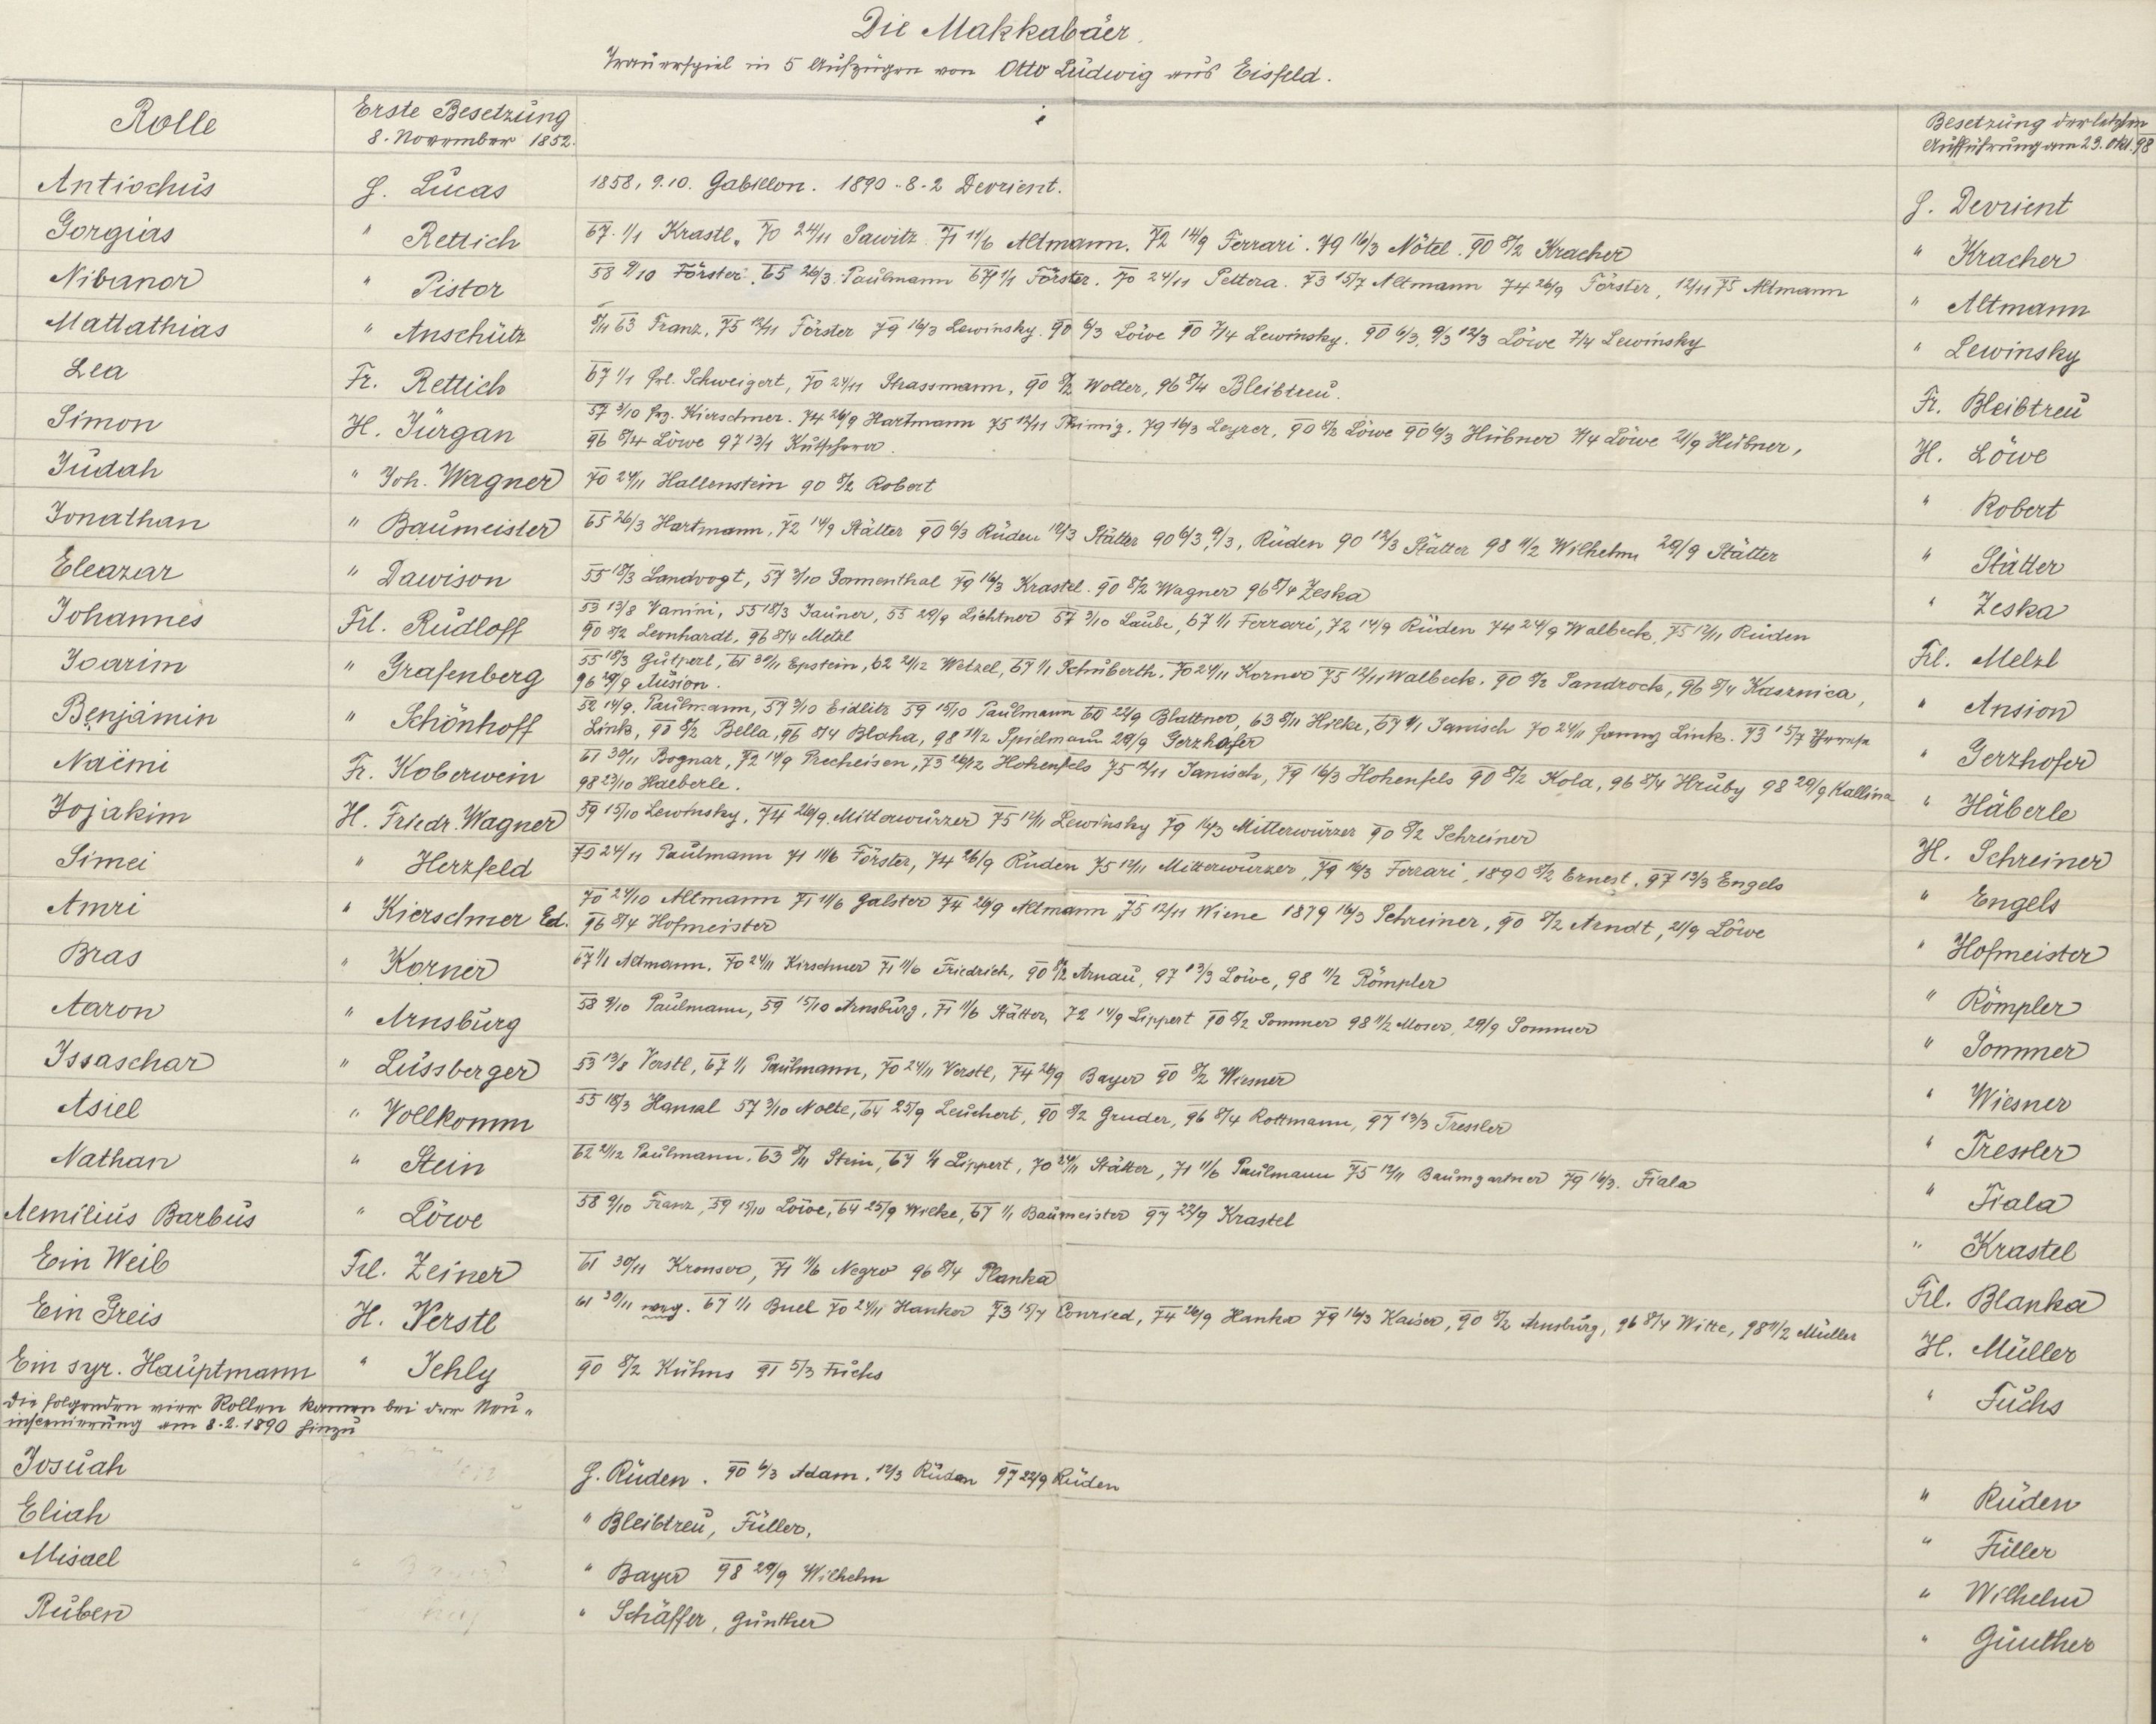 Die Makkabäer.
Trauerspiel in 5 Aufzügen von Otto Ludwig aus Eisfeld.
Rolle
Erste Besetzung
8. November 1852.
Besetzung der letzten
Aufführung am 23. Okt. 98
Antiochus H. Lucas 1858, 9.10. Gabillon. 1890 - 8 - 2 Devrient. H. Devrient
Gorgias " Rettich 67. 1/1 Krastl, 70 24/11 Sawitz. 71 11/6 Altmann. 72 14/9 Ferrari. 79 16/3 Nötel. 90 8/2 Kracher " Kracher
Nikanor " Pistor 58 9/10 Förster. 65 26/3 Paulmann 67 1/1 Förster. 70 24/11 Pettera. 73 15/7 Altmann 74 26/9 Förster, 12/11 75 Altmann " Altmann
Mattathias " Anschütz 8/11 63 Franz, 75 12/11 Förster 79 16/3 Lewinsky. 90 6/3 Löwe 90 7/4 Lewinsky. 90 6/3, 9/3 12/3 Löwe 7/4 Lewinsky " Lewinsky
Lea Fr. Rettich 67 1/1 Frl. Schweigert, 70 24/11 Strassmann, 90 8/2 Wolter, 96 8/4 Bleibtreu. Fr. Bleibtreu
Simon H. Jürgan 57 3/10 Kierschner. 74 26/9 Hartmann 75 12/11 Thimig. 79 16/3 Leyrer, 90 8/2 Löwe 90 6/3 Hübner 7/4 Löwe 21/9 Hübner,
96 8/4 Löwe 97 13/1 Kutschera. H. Löwe
Judah " Joh. Wagner 70 24/11 Hallenstein 90 8/2 Robert " Robert
Jonathan " Baumeister 65 26/3 Hartmann, 72 14/9 Stätter 90 6/3 Rüden 12/3 Stätter 90 6/3, 9/3, Rüden 90 12/3 Stätter 98 11/2 Wilhelm 29/9 Stätter " Stätter
Eleazar " Dawison 55 18/3 Landvogt, 57 3/10 Sonnenthal 79 16/3 Krastel. 90 8/2 Wagner 96 8/4 Zeska " Zeska
Johannes Frl. Rudloff 53 13/8 Vanini, 55 18/3 Jauner, 55 29/9 Lichtner 57 3/10 Laube, 67 1/1 Ferrari, 72 14/9 Rüden 74 24/9 Walbeck, 75 12/11 Rüden
90 8/2 Leonhardt, 96 8/4 Metzl Frl. Melzl
Joarim " Grafenberg 55 18/3 Gutperl, 61 30/11 Epstein, 62 21/12 Wetzel, 67 1/1 Schuberth. 70 24/11 Korner 75 12/11 Walbeck. 90 8/2 Sandrock, 96 8/4 Kasznica,
96 29/9 Ansion. " Ansion
Benjamin " Schönhoff 52 14/9. Paulmann, 57 3/10 Eidlitz 59 15/10 Paulmann 60 22/9 Blattner, 63 8/11 Hilke, 67 1/1 Janisch 70 24/11 Fanny Link. 73 15/7 Therese
Link, 90 8/2 Bella, 96 8/4 Blaha, 98 11/2 Spielmann 29/9 Gerzhofer " Gerzhofer
Naëmi Fr. Koberwein 61 30/11 Bognar, 72 14/9 Precheisen, 73 26/12 Hohenfels 75 12/11 Janisch, 79 16/3 Hohenfels 90 8/2 Kola, 96 8/4 Hruby 98 29/9 Kallina
98 23/10 Haeberle. " Häberle
Jojakim H. Friedr. Wagner 59 15/10 Lewinsky, 74 26/9. Mitterwurzer 75 12/11 Lewinsky 79 16/3 Mitterwurzer 90 8/2 Schreiner H. Schreiner
Simei " Herzfeld 70 24/11 Paulmann 71 11/6 Förster, 74 26/9 Rüden 75 12/11 Mitterwurzer, 79 16/3 Ferrari, 1890 8/2 Ernest, 97 13/3 Engels " Engels
Amri " Kierschner Ed. 70 24/10 Altmann 71 11/6 Galster 74 26/9 Altmann 75 12/11 Wiene 1879 16/3 Schreiner, 90 8/2 Arndt, 21/9 Löwe
96 8/4 Hofmeister " Hofmeister
Bras " Korner 67 1/1 Altmann, 70 24/11 Kirschner 71 11/6 Friedrich, 90 8/2 Arnau, 97 13/3 Löwe, 98 11/2 Römpler " Römpler
Aaron " Arnsburg 58 9/10 Paulmann, 59 15/10 Arnsburg, 71 11/6 Stätter, 72 14/9 Lippert 90 8/2 Sommer 98 11/2 Moser, 29/9 Sommer " Sommer
Issaschar " Lussberger 53 13/8 Verstl, 67 1/1 Paulmann, 70 24/11 Verstl, 74 26/9 Bayer 90 8/2 Wiesner " Wiesner
Asiel " Vollkomm 55 18/3 Hamal 57 3/10 Nolte, 64 25/9 Leuchert, 90 8/2 Gruder, 96 8/4 Rottmann, 97 13/3 Tressler " Tressler
Nathan " Stein 62 21/12 Paulmann. 63 8/11 Stein, 67 1/1 Lippert, 70 24/11 Stätter, 71 11/6 Paulmann 75 12/11 Baumgartner 79 16/3. Fiala " Fiala
Aemilius Barbus " Löwe 58 9/10 Franz, 59 15/10 Löwe, 64 25/9 Wilke, 67 1/1 Baumeister 97 22/9 Krastel " Krastel
Ein Weib Frl. Zeiner 61 30/11 Kronser, 71 11/6 Negro 96 8/4 Planka Frl. Blanka
Ein Greis H. Verstl 61 30/11 weg. 67 1/1 Buel 70 24/11 Hanker 73 15/7 Conried, 74 26/9 Hanka 79 16/3 Kaiser, 90 8/2 Arnsburg, 96 8/4 Witte, 98 11/2 Müller H. Müller
Ein syr. Hauptmann " Jehly 90 8/2 Kühns 91 5/3 Fuchs " Fuchs
Die folgenden vier Rollen kamen bei der Neu-
inscenierung am 8. 2. 1890 hinzu
Josuah H. Rüden. 90 6/3 Adam, 12/3 Rüden 97 22/9 Rüden " Rüden
Eliah " Bleibtreu, Füller, " Füller
Misael " Bayer 98 29/9 Wilhelm " Wilhelm
Ruben " Schäffer, Günther " Günther